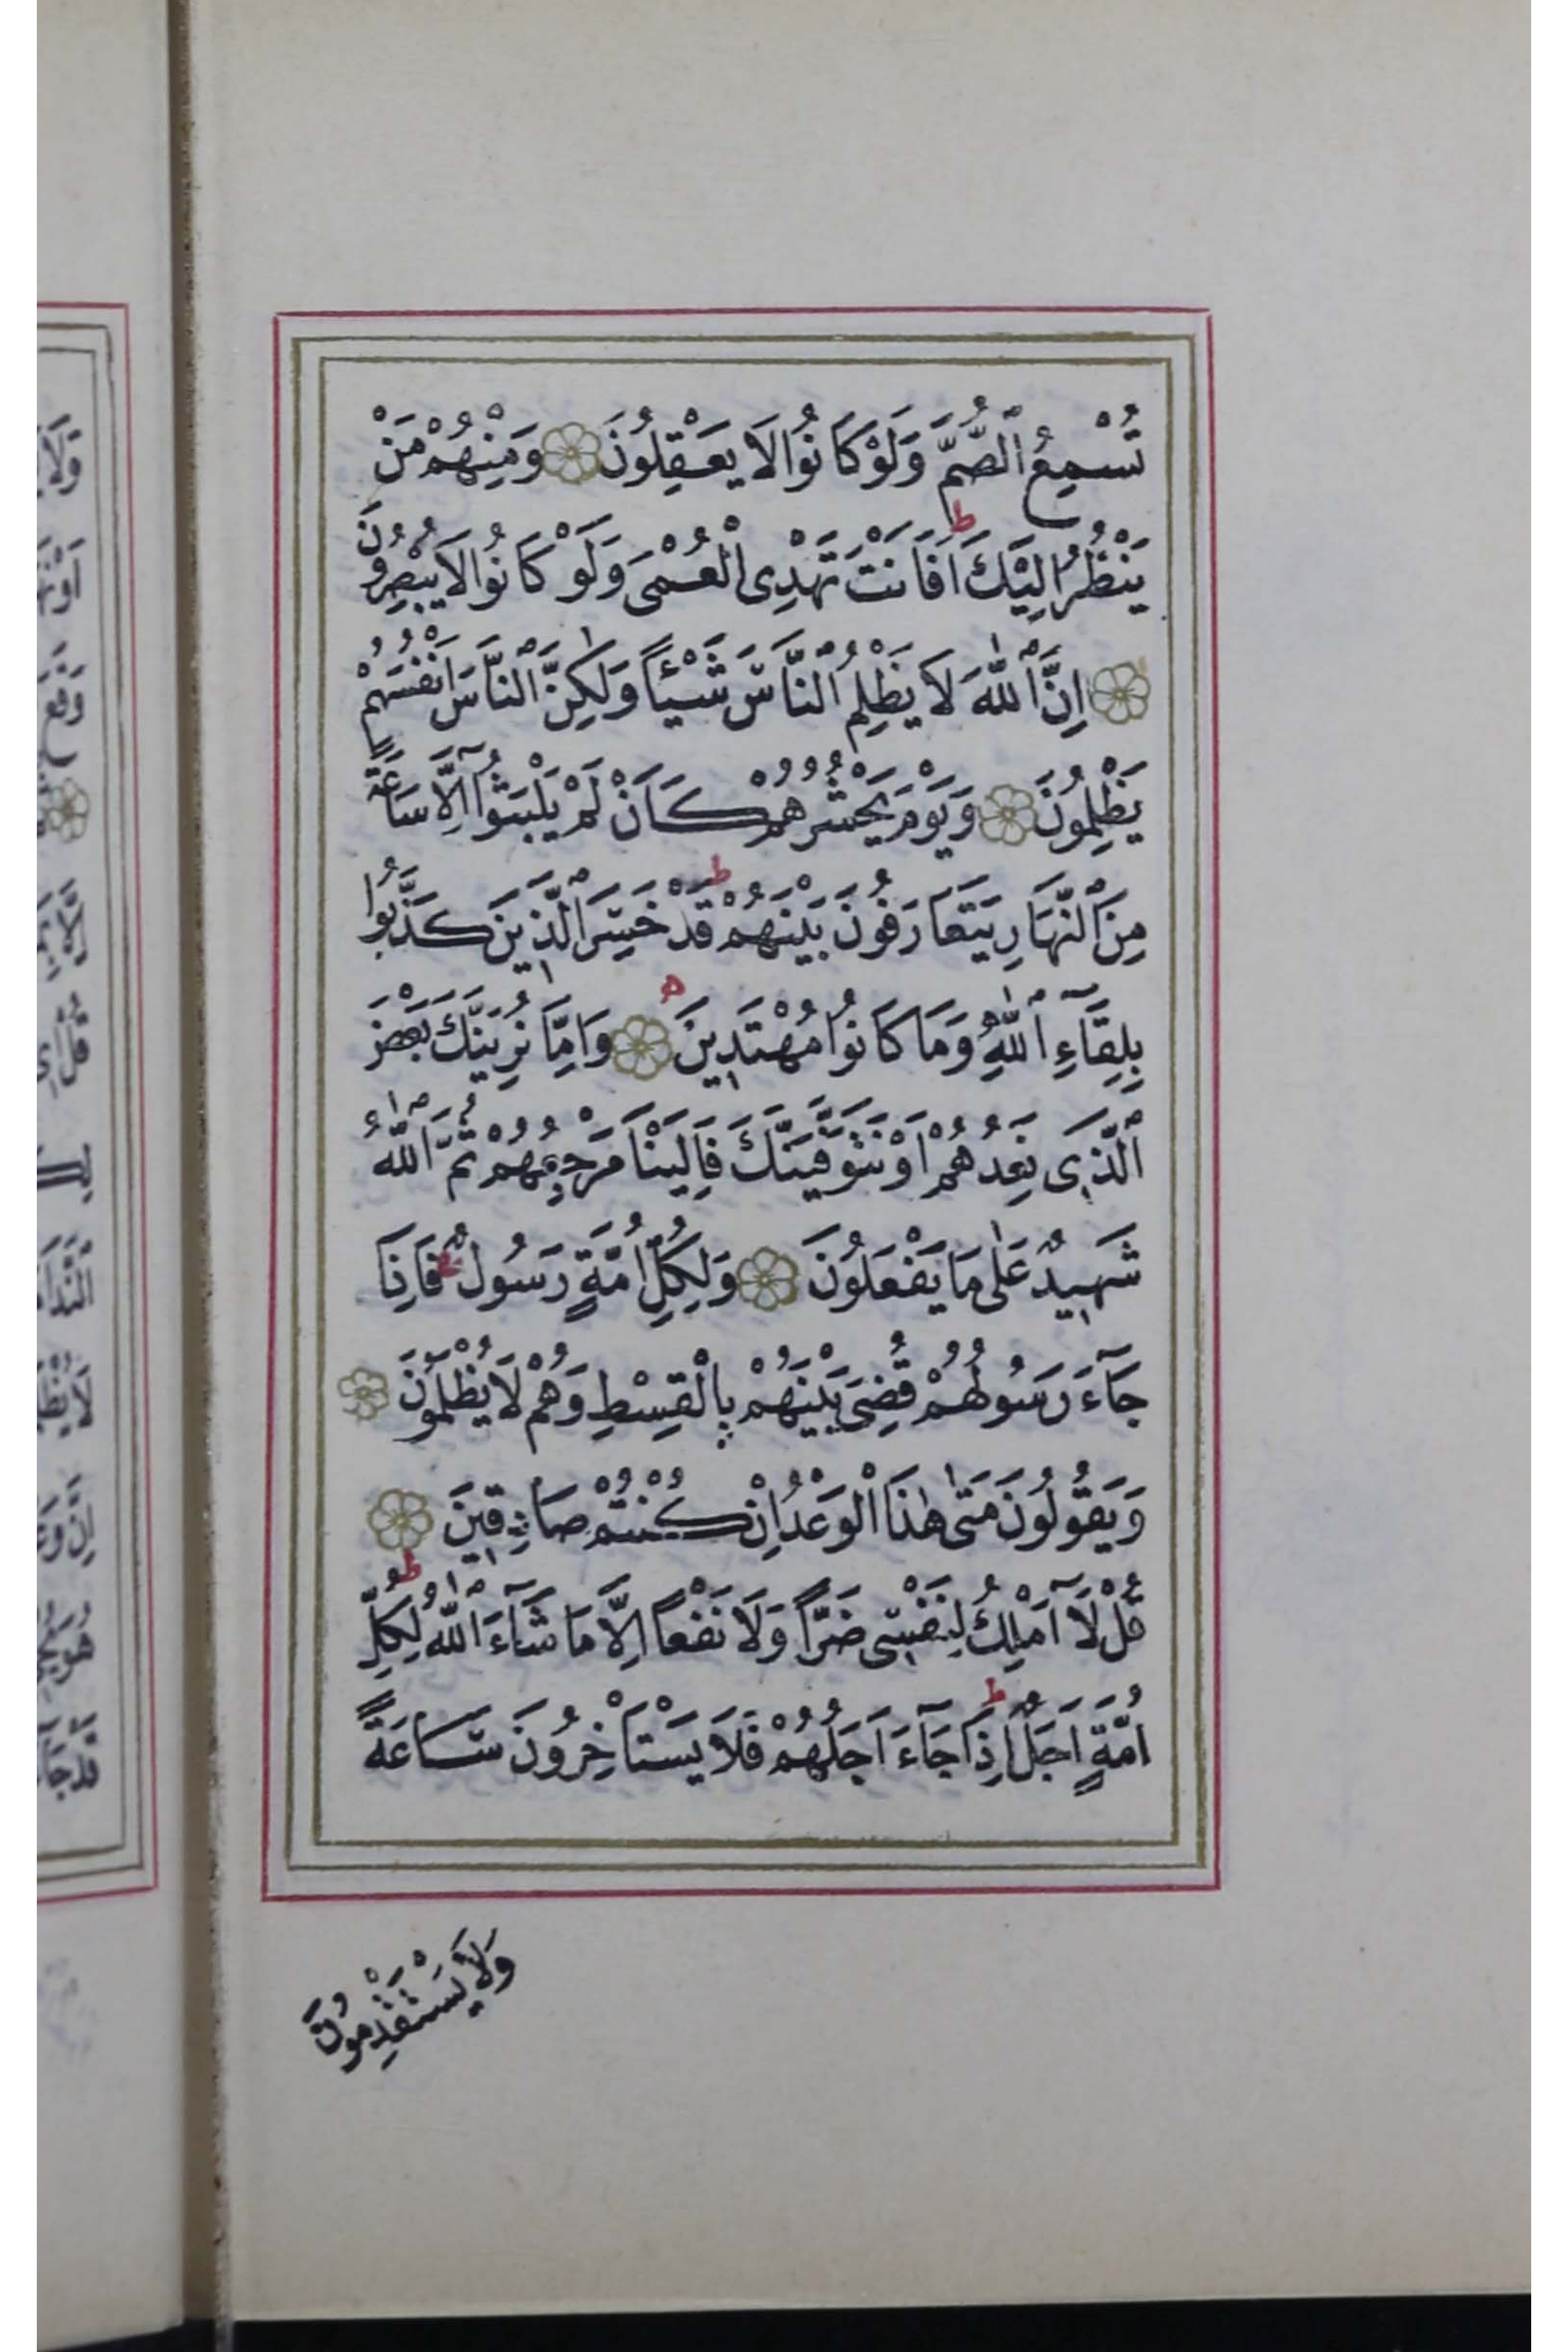 تُسْمِعُ ٱلصُّمَّ وَلَوْ كَانُوا لَا يَعْقِلُونَ وَمِنْهُمْ مَنْ
يَنْظُرُ اِلَيْكَ اَفَاَنْتَ تَهْدِى الْعُمْىَ وَلَوْ كَانُوا لَا يُبْصِرُونَ
اِنَّ ٱللّٰهَ لَا يَظْلِمُ ٱلنَّاسَ شَيْـًٔا وَلٰكِنَّ ٱلنَّاسَ اَنْفُسَهُمْ
يَظْلِمُونَ وَيَوْمَ يَحْشُرُهُمْ كَاَنْ لَمْ يَلْبَثُوٓا اِلَّا سَاعَةً
مِنَ ٱلنَّهَارِ يَتَعَارَفُونَ بَيْنَهُمْ قَدْ خَسِرَ ٱلَّذِينَ كَذَّبُوا
بِلِقَآءِ ٱللّٰهِ وَمَا كَانُوا مُهْتَدِينَ وَاِمَّا نُرِيَنَّكَ بَعْضَ
ٱلَّذِى نَعِدُهُمْ اَوْ نَتَوَفَّيَنَّكَ فَاِلَيْنَا مَرْجِعُهُمْ ثُمَّ ٱللّٰهُ
شَهِيدٌ عَلٰى مَا يَفْعَلُونَ وَلِكُلِّ اُمَّةٍ رَسُولٌ فَاِذَا
جَآءَ رَسُولُهُمْ قُضِىَ بَيْنَهُمْ بِالْقِسْطِ وَهُمْ لَا يُظْلَمُونَ
وَيَقُولُونَ مَتٰى هٰذَا الْوَعْدُ اِنْ كُنْتُمْ صَادِقِينَ
قُلْ لَآ اَمْلِكُ لِنَفْسِى ضَرًّا وَلَا نَفْعًا اِلَّا مَا شَآءَ ٱللّٰهُ لِكُلِّ
اُمَّةٍ اَجَلٌ اِذَا جَآءَ اَجَلُهُمْ فَلَا يَسْتَأْخِرُونَ سَاعَةً
وَلَا يَسْتَقْدِمُونَ